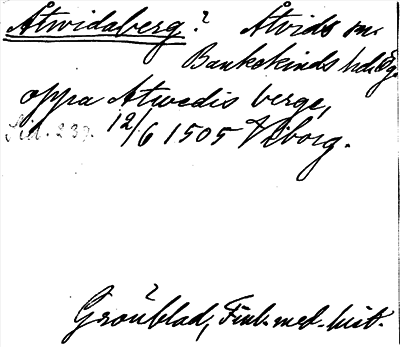 Atvidaberg? Atvids sn.
Bankekinds hd. Ög.
oppa Atwedis berge,
Sid. 237. 12/6 1505 Viborg.
Grönblad, Finl. med. hist.